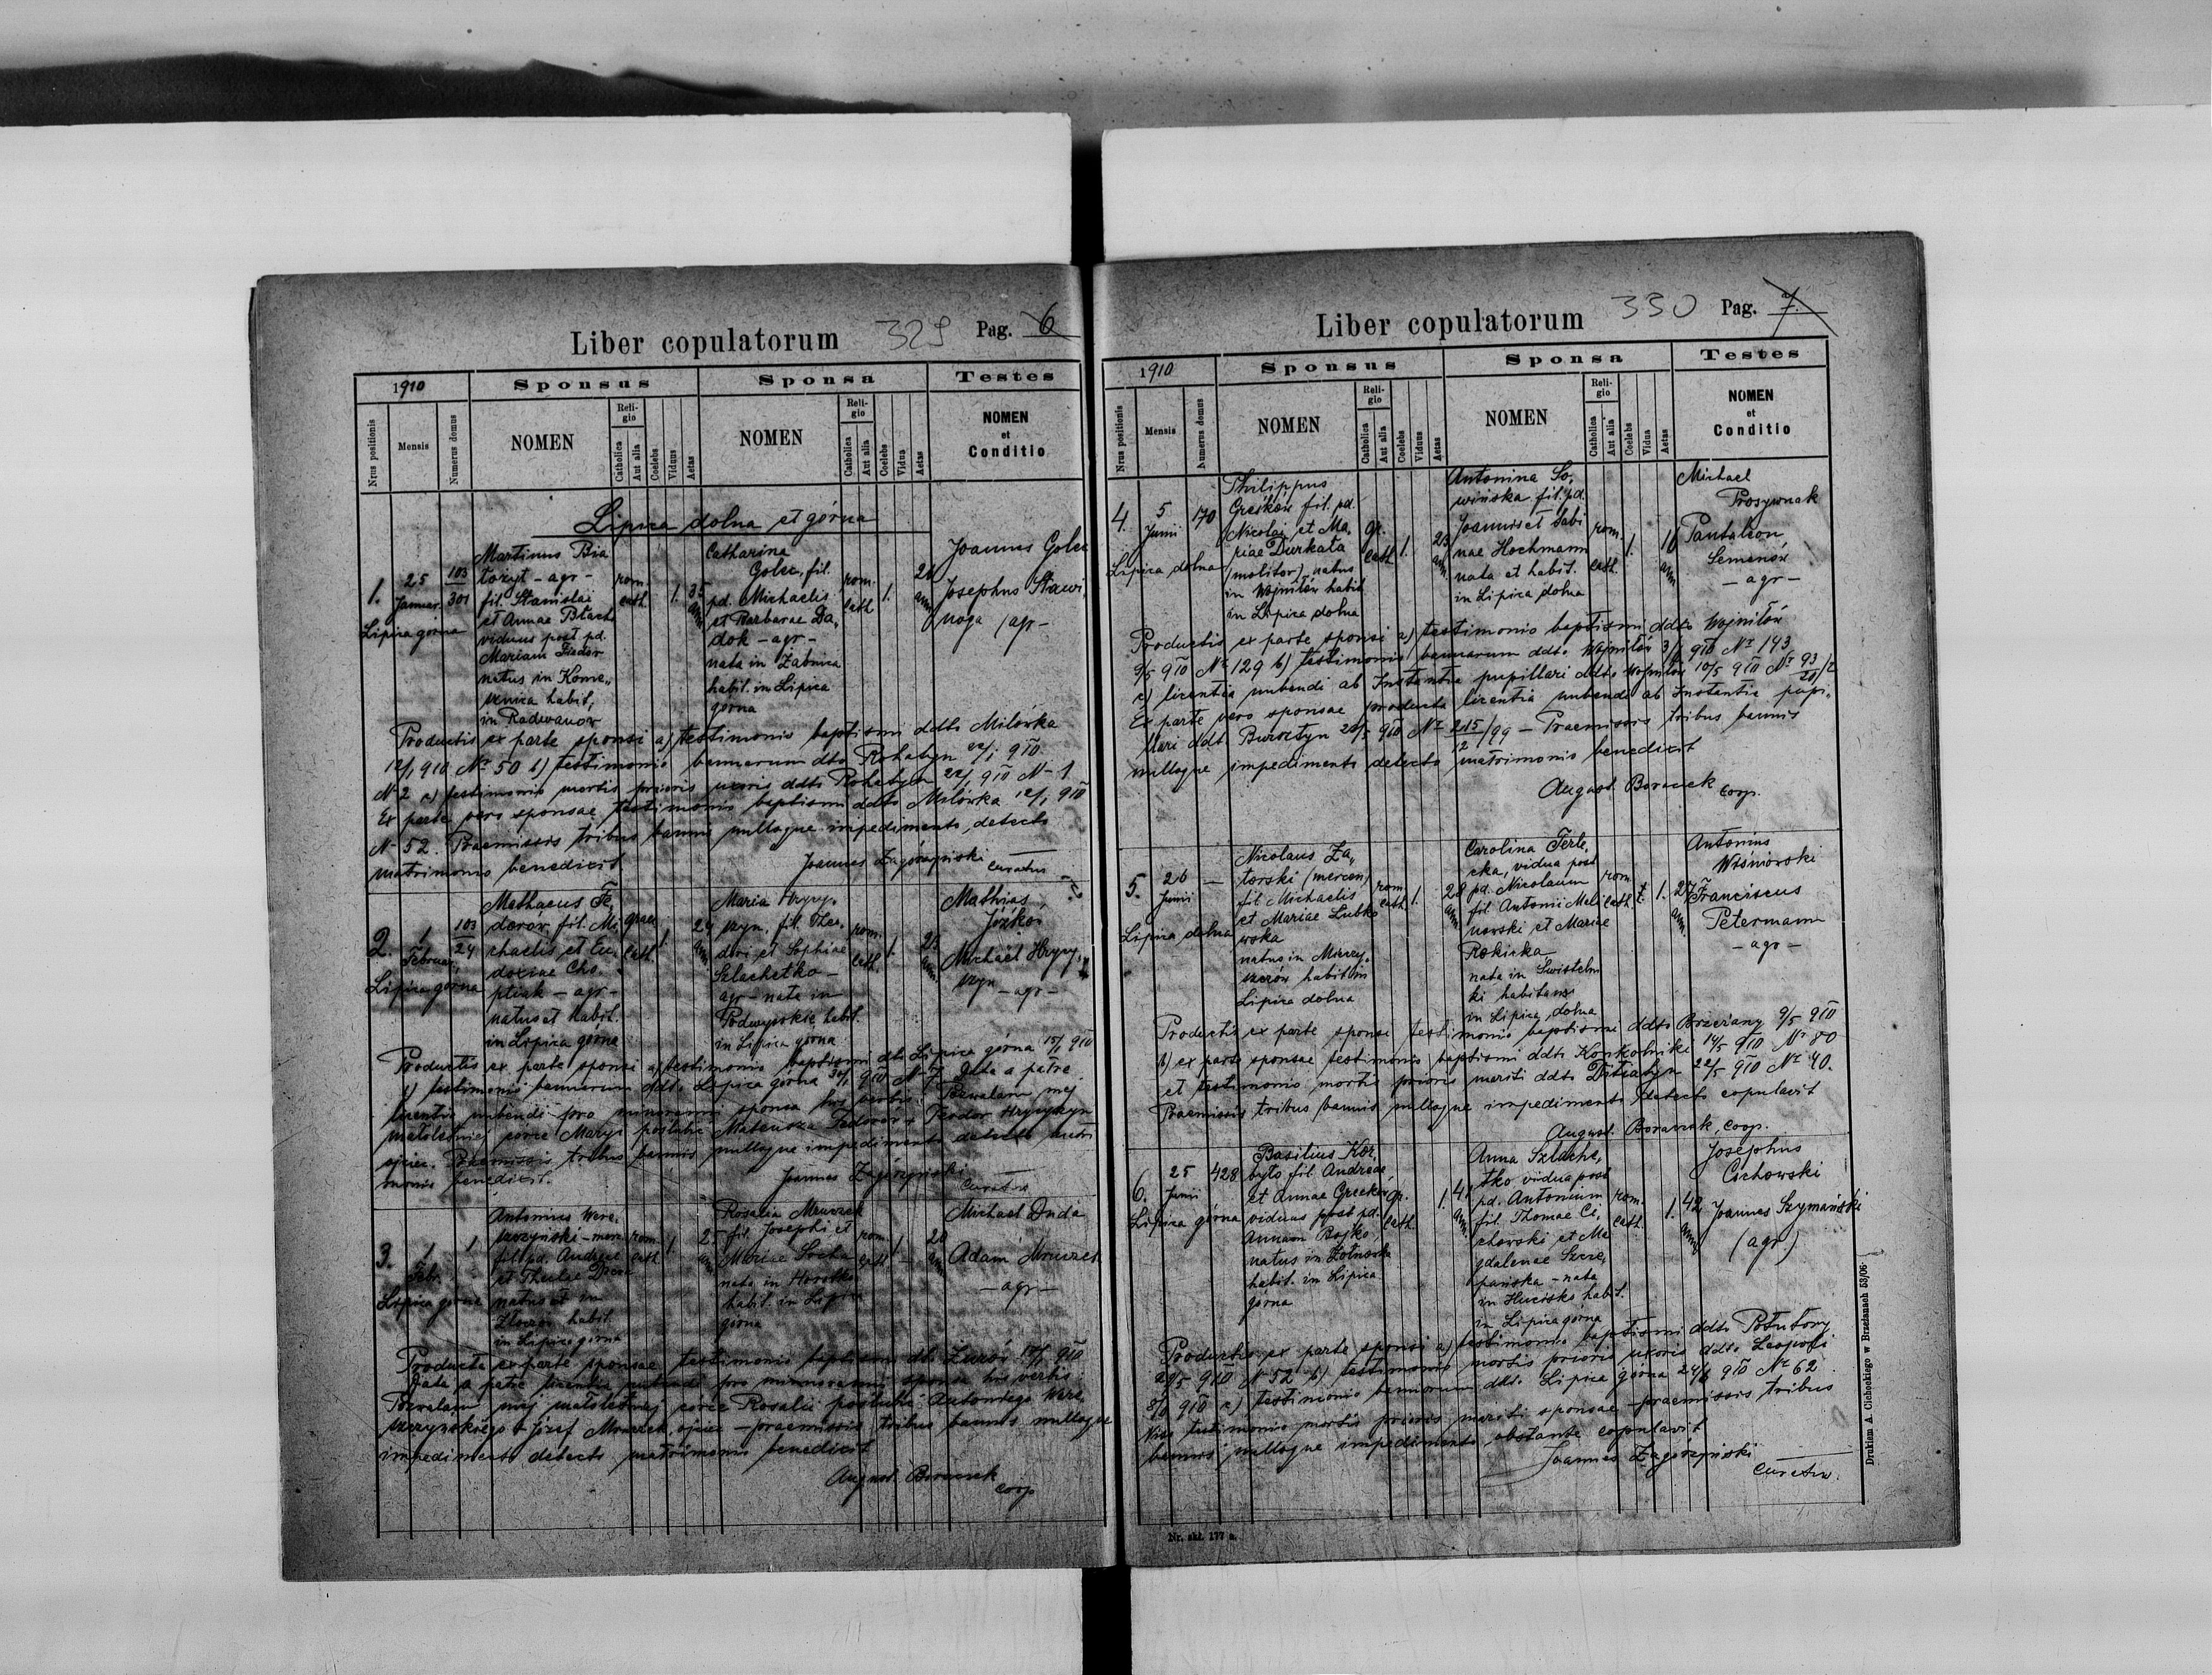 Liber copulatorum 329 Pag. 6
1910
Sponsus
Sponsa
Testes
Nrus positionis
Mensis
Numerus domus
NOMEN
Religio
Catholica
Aut alia
Coelebs
Viduus
Aetas
NOMEN
Religio
Catholica
Aut alia
Coelebs
Vidua
Aetas
NOMEN
et
Conditio
Lipica dolna et górna
1.
25
Januar.
Lipica górna
103
301
Martinus Bia
tożyt - agr -
fil. Stanislai
et Annae Błach
viduus post pd.
Mariam Fiedor
natus in Kame„
sznica habit.
in Radwanow
rom.
cath.
1.
35
ann
Catharina
Golec, fil.
pd. Michaelis
et Barbarae Da„
dok - agr -
nata in Żabnica
habit. in Lipica
górna
rom.
cath
1.
24
ann
Joannes Golec
Josephus Stawi„
noga / agr -
Productis ex parte sponsi a) testimonio baptismi ddto Milówka
12/1 910 No 50 b) testimonio bannorum dto Rohatyn 22/1 910
No 2 c) testimonio mortis prioris uxoris ddto Rohatyn 22/1 910 No 1
Ex parte vero sponsae testimonio baptismi ddto Milówka 12/1 910
No 52. Praemissis tribus bannis nulloque impedimento detecto
matrimonio benedixit
Joannes Zagórzyński
curatus
2.
1
Februar.
Lipica górna
103
24
Mathaeus Fe„
dorów, fil. Mi
chaelis et Eu„
doxiae Cho„
ptiak - agr -
natus et habit.
in Lipica górna
graec
cath.
1
24
ann
Maria Hrycy„
szyn, fil. Theo„
dori et Sophiae
Szlachetko -
agr - nata in
Podwysokie habit.
in Lipica górna
rom.
cath.
1.
23
ann
Mathias
Józków
Michael Hrycy„
szyn - agr -
Productis ex parte sponsi a) testimonio baptismi dto Lipica górna 15/1 910
b) testimonio bannorum ddto Lipica górna 30/1 910 No 7. Data a patre
licentia nubendi pro minorenni sponsa his verbis: Pozwalam mej
małoletniej córce Maryi poślubić Mateusza Fedorów Teodor Hrycyszyn
ojciec. Praemissis tribus bannis nulloque impedimento detecto matri
monio benedixit.
Joannes Zagórzyński
curatus
3.
1
Febr.
Lipica górna
1
Antonius Were„
szczyński - mura
fil. pd. Andreae
et Theclae
natus et in
Złoczów habit.
in Lipica górna
rom.
cath
1
25
ann
Rosalia Mruczek
fil. Josephi et
Mariae Socha
nata in
habit. in Lipica
górna
rom.
cath
1
20
ann
Michael Duda
Adam Mruczek
- agr -
Producto ex parte sponsae testimonio baptismi dto Żurów 17/1 910
Data a patre licentia nubendi pro minorenni sponsa his verbis:
Pozwalam mej małoletniej córce Rosalii poślubić Antoniego Were„
szczyńskiego + Józef Mruczek, ojciec - praemissis tribus bannis nulloque
impedimento detecto matrimonio benedixit
August. Boraczek
coop
Liber copulatorum 330 Pag. 7
1910
Sponsus
Sponsa
Testes
Nrus positionis
Mensis
Numerus domus
NOMEN
Religio
Catholica
Aut alia
Coelebs
Viduus
Aetas
NOMEN
Religio
Catholica
Aut alia
Coelebs
Vidua
Aetas
NOMEN
et
Conditio
4.
5
Junii
Lipica dolna
170
Philippus
Greśków fil. pd.
Nicolai et Ma„
riae Durkata
(molitor), natus
in Wojniłów habit
in Lipica dolna
gr.
cath
1.
23
ann.
Antonina So„
wińska, fil. pd.
Joannis et Sabi
nae Hochmann
nata et habit.
in Lipica dolna
rom.
cath.
1.
16
ann
Michael
Prosywnak
Pantaleon
Semenów
- agr -
Productis ex parte sponsi a) testimonio baptismi ddto Wojniłów
9/5 910 No 129 b) testimonio bannorum ddto Wojniłów 3/6 910 No 143
c) licentia nubendi ab Instantia pupillari ddto Wojniłów 10/5 910 No 93/20/2
Ex parte vero sponsae producta licentia nubendi ab Instantia pupi„
llari ddto Bursztyn 20/5 910 No 215/12/99 - Praemissis tribus bannis
nulloque impedimento detecto matrimonio benedixit
August. Boraczek coop.
5.
26
Junii
Lipica dolna
—
Nicolaus Za„
torski (mercen)
fil Michaelis
et Mariae Lubko
wska
natus in Mieczy„
szczów habit in
Lipica dolna
rom.
cath
1.
28
ann
Carolina Terle„
cka, vidua post
pd. Nicolaum
fil. Antonii Mali
nowski et Mariae
Rokicka
nata in Świsteln
ki habitans
in Lipica dolna
rom
cath.
1.
27
ann.
Antonius
Wiśniowski
Franciscus
Petermann
- agr -
Productis ex parte sponsi testimonio baptismi ddto Brzeżany 9/5 910
b) ex parte sponsae testimonio baptismi ddto Konkolniki 14/5 910 No 80
et testimonio mortis prioris mariti ddto Ditiatyn 22/5 910 No 40.
Praemissis tribus bannis nulloque impedimento detecto copulavit
August. Boraczek, coop.
6.
25
Junii
Lipica górna
428
Basilius Kor„
byto fil. Andreae
et Annae Greeków
viduus post pd.
Annam Bojko,
natus in Żołnówka
habit. in Lipica
górna
gr.
cath.
1.
41
ann
Anna Szlache„
tko vidua post
pd. Antonium
fil. Thomae Ci„
chowski et Ma
gdalenae Szcze„
pańska - nata
in Hucisko habit.
in Lipica górna
rom.
cath.
1.
42
ann
Josephus
Cichowski
Joannes Szymański
(agr)
Productis ex parte sponsi a) testimonio baptismi ddto Potutory
29/5 910 No 52 b) testimonio mortis prioris uxoris ddto Leopoli
8/6 910 c) testimonio bannorum ddto Lipica górna 24/6 910 No 62
Viso testimonio mortis prioris mariti sponsae - praemissis tribus
bannis nulloque impedimento obstante copulavit
Joannes Zagórzyński
curatus.
Nr. skł. 177 a.
Drukiem A. Cichockiego w Brzeżanach 53/06